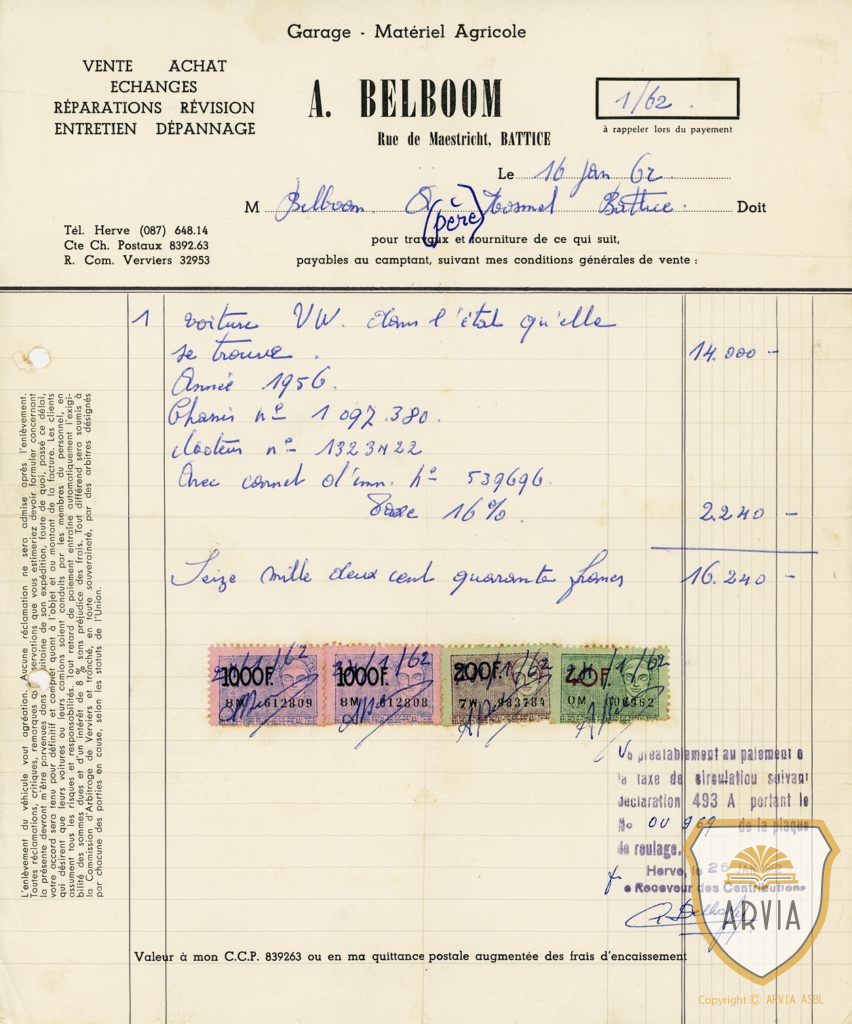 Garage - Matériel Agricole
VENTE ACHAT
ECHANGES
RÉPARATIONS RÉVISION
ENTRETIEN DÉPANNAGE
A. BELBOOM
Rue de Maestricht, BATTICE
1/62.
à rappeler lors du payement
Le 16 Jan 62
M Belboom (père) Battice. Doit
Tél. Herve (087) 648.14
Cte Ch. Postaux 8392.63
R. Com. Verviers 32953
pour travaux et fourniture de ce qui suit,
payables au camptant, suivant mes conditions générales de vente :
1 voiture VW. dans l'état qu'elle
se trouve. 14.000 -
Année 1956.
Chassis n° 1 097.380.
Moteur n° 1323422
Avec carnet d'imm. n° 539696.
Taxe 16%. 2.240 -
Seize mille deux cent quarante francs 16.240 -
1000F. 1000F. 200F. 40F
8M 612809 8M 612808 7W 983784 0M
L'enlèvement du véhicule vaut agréation. Aucune réclamation ne sera admise après l'enlèvement.
Toutes réclamations, critiques, remarques ou observations que vous estimeriez devoir formuler concernant
la présente devront m'être parvenues dans la huitaine de son expédition, faute de quoi, passé ce délai,
votre accord sera tenu pour définitif et complet quant à l'objet et au montant de la facture. Les clients
qui désirent que leurs voitures ou leurs camions soient conduits par les membres du personnel, en
assument tous les risques et responsabilités. Tout retard de paiement entraîne automatiquement l'exigi-
bilité des sommes dues et d'un intérêt de 8 % sans préjudice des frais. Tout différend sera soumis à
la Commission d'Arbitrage de Verviers et tranché, en toute souveraineté, par des arbitres désignés
par chacune des parties en cause, selon les statuts de l'Union.
Vu préalablement au paiement
la taxe de circulation suivant
déclaration 493 A portant le
No OU 969 de la plaque
de roulage.
Herve, le 25 JAN
Receveur des Contributions
ARVIA
Valeur à mon C.C.P. 839263 ou en ma quittance postale augmentée des frais d'encaissement
Copyright © ARVIA ASBL